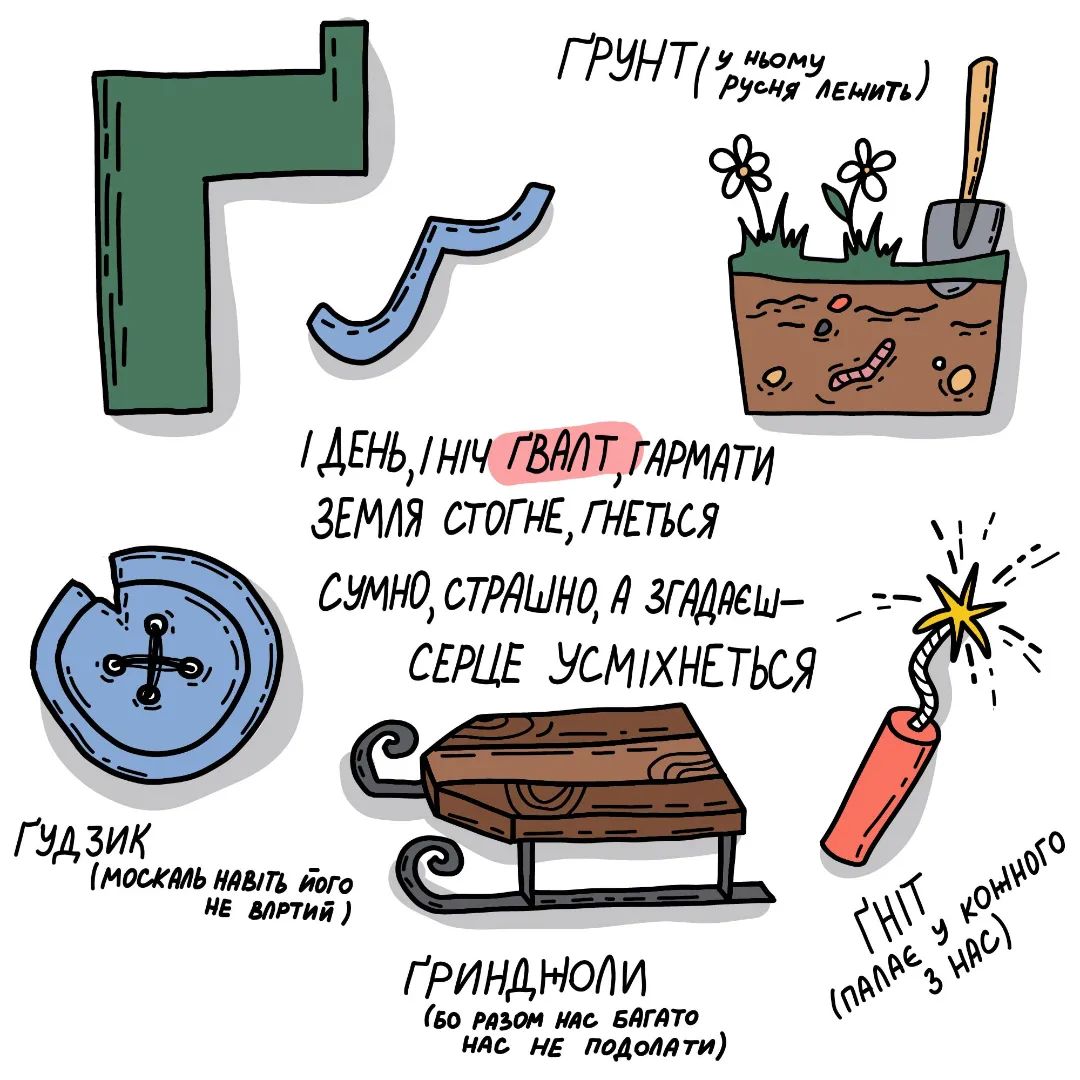 Ґ ґ
ҐРУНТ (у ньому
русня лежить)
І ДЕНЬ, І НІЧ ҐВАЛТ, ГАРМАТИ
ЗЕМЛЯ СТОГНЕ, ГНЕТЬСЯ
СУМНО, СТРАШНО, А ЗГАДАЄШ–
СЕРЦЕ УСМІХНЕТЬСЯ
ҐУДЗИК
(МОСКАЛЬ НАВІТЬ ЙОГО
НЕ ВАРТИЙ)
ҐРИНДЖОЛИ
(БО РАЗОМ НАС БАГАТО
НАС НЕ ПОДОЛАТИ)
ҐНІТ
(ПАЛАЄ У КОЖНОГО
З НАС)